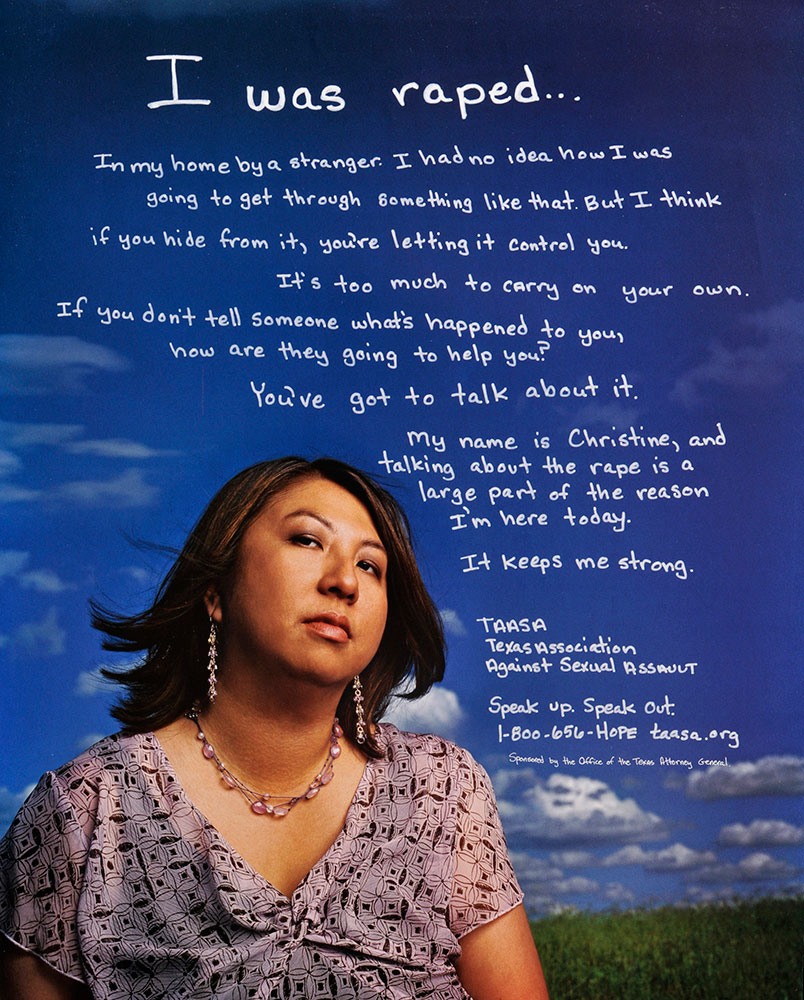 I was raped...
In my home by a stranger. I had no idea how I was
going to get through something like that. But I think
if you hide from it, you're letting it control you.
It's too much to carry on your own.
If you don't tell someone what's happened to you,
how are they going to help you?
You've got to talk about it.
My name is Christine, and
talking about the rape is a
large part of the reason
I'm here today.
It keeps me strong.
TAASA
Texas Association
Against Sexual Assault
Speak up. Speak Out.
1-800-656-HOPE taasa.org
Sponsored by the Office of the Texas Attorney General.